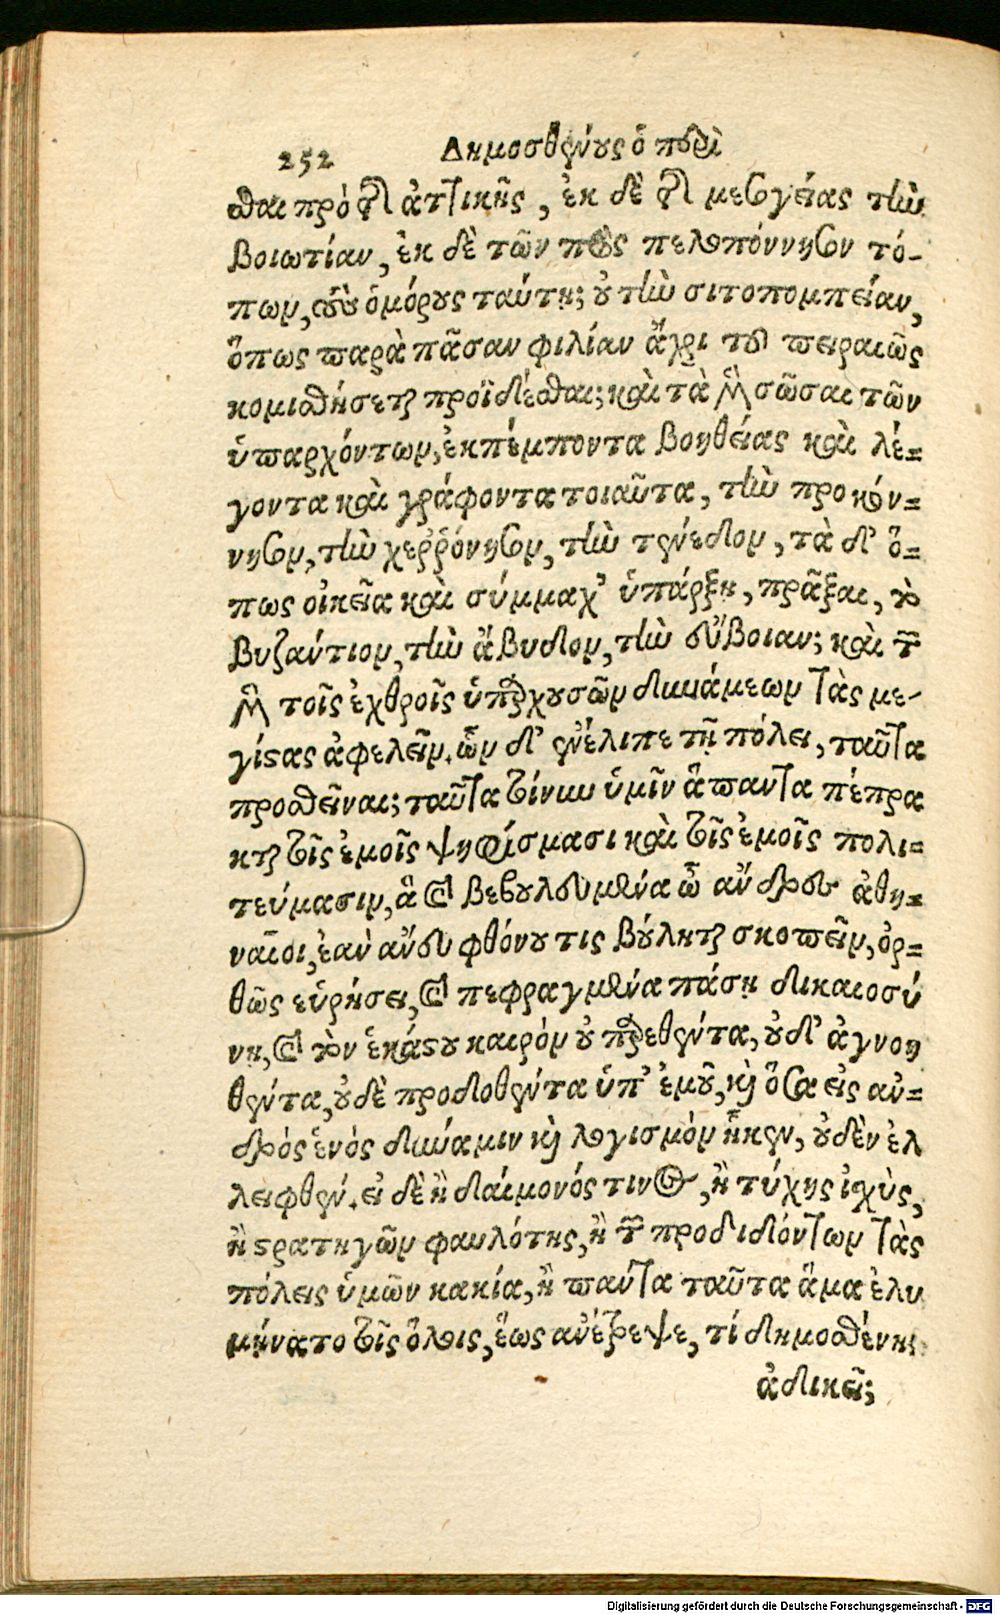 252 Δημοσθένους ὁ περὶ
σθαι πρὸ τῆς ἀττικῆς, ἐκ δὲ τῆς μεσογείας τὴν
βοιωτίαν, ἐκ δὲ τῶν πρὸς πελοπόννησον τό-
πων, τοὺς ὁμόρους ταύτῃ; οὐ τὴν σιτοπομπείαν,
ὅπως παρὰ πᾶσαν φιλίαν ἄχρι τοῦ πειραιῶς
κομισθήσεται προϊδέσθαι; καὶ τὰ μὲν σῶσαι τῶν
ὑπαρχόντων, ἐκπέμποντα βοηθείας καὶ λέ-
γοντα καὶ γράφοντα τοιαῦτα, τὴν προκόν-
νησον, τὴν χερῤῥόνησον, τὴν τένεδον, τὰ δ' ὅ-
πως οἰκεῖα καὶ σύμμαχ' ὑπάρξῃ, πρᾶξαι, τὸ
βυζάντιον, τὴν ἄβυδον, τὴν εὔβοιαν; καὶ τῶν
μὲν τοῖς ἐχθροῖς ὑπαρχουσῶν δυνάμεων τὰς με-
γίστας ἀφελεῖν. ὧν δ' ἐνέλιπε τῇ πόλει, ταῦτα
προσθεῖναι; ταῦτα τοίνυν ὑμῖν ἅπαντα πέπρα
κται τοῖς ἐμοῖς ψηφίσμασι καὶ τοῖς ἐμοῖς πολι-
τεύμασιν, ἃ καὶ βεβουλευμένα ὦ ἄνδρες ἀθη-
ναῖοι, ἐὰν ἄνευ φθόνου τις βούληται σκοπεῖν, ὀρ-
θῶς εὑρήσει, καὶ πεφραγμένα πάσῃ δικαιοσύ
νῃ, καὶ τὸν ἑκάστου καιρὸν οὐ παρεθέντα, οὐδ' ἀγνοη
θέντα, οὐδὲ προδοθέντα ὑπ' ἐμοῦ, καὶ ὅσα εἰς ἀν-
δρὸς ἑνὸς δύναμιν καὶ λογισμὸν ἧκεν, οὐδὲν ἐλ
λειφθέν. εἰ δὲ ἢ δαίμονός τινος, ἢ τύχης ἰχὺς,
ἢ στρατηγῶν φαυλότης, ἢ τῶν προδιδόντων τὰς
πόλεις ὑμῶν κακία, ἢ πάντα ταῦτα ἅμα ἐλυ
μήνατο τοῖς ὅλοις, ἕως ἀνέτρεψε, τί δημοσθένης
ἀδικεῖ;
Digitalisierung gefördert durch die Deutsche Forschungsgemeinschaft - DFG